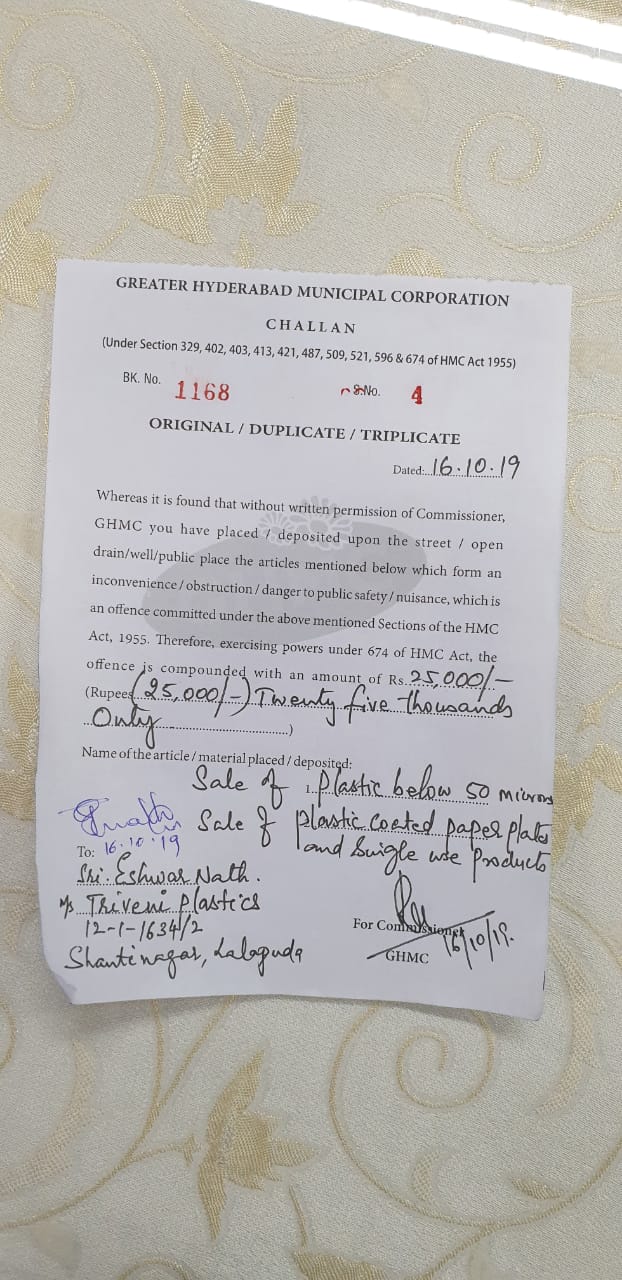 GREATER HYDERABAD MUNICIPAL CORPORATION
CHALLAN
(Under Section 329, 402, 403, 413, 421, 487, 509, 521, 596 & 674 of HMC Act 1955)
BK. No. 1168 S.No. 4
ORIGINAL / DUPLICATE / TRIPLICATE
Dated:..16.10.19
Whereas it is found that without written permission of Commissioner,
GHMC you have placed / deposited upon the street / open
drain/well/public place the articles mentioned below which form an
inconvenience / obstruction / danger to public safety / nuisance, which is
an offence committed under the above mentioned Sections of the HMC
Act, 1955. Therefore, exercising powers under 674 of HMC Act, the
offence is compounded with an amount of Rs. 25,000/-
(Rupees (25,000/-) Twenty five thousands
Only ..............................)
Name of the article / material placed / deposited:
Sale of 1. Plastic below 50 microns
Sale of plastic coated paper plates
and Single use Products
16.10.19
To:
Sri. Eshwar Nath.
M/s Triveni Plastics
12-1-1634/2
Shantinagar, Lalaguda
For Commissioner
16/10/19.
GHMC